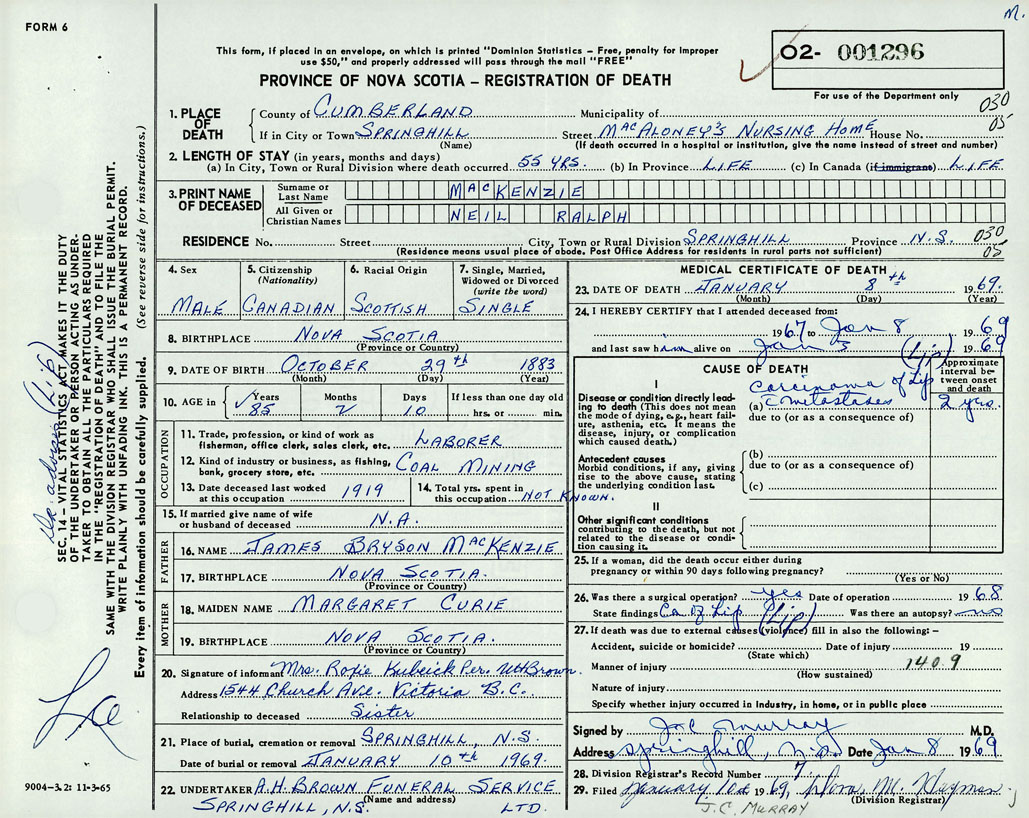 M.
FORM 6
This form, if placed in an envelope, on which is printed "Dominion Statistics – Free, penalty for improper
use $50," and properly addressed will pass through the mail "FREE"
PROVINCE OF NOVA SCOTIA – REGISTRATION OF DEATH
02- 001296
For use of the Department only
030
05
1. PLACE OF DEATH
County of CUMBERLAND Municipality of
If in City or Town SPRINGHILL Street MACALONEY'S NURSING HOME House No.
(Name) (If death occurred in a hospital or institution, give the name instead of street and number)
2. LENGTH OF STAY (in years, months and days)
(a) In City, Town or Rural Division where death occurred 55 YRS. (b) In Province LIFE (c) In Canada (if immigrant) LIFE
3. PRINT NAME OF DECEASED
Surname or Last Name MACKENZIE
All Given or Christian Names NEIL RALPH
RESIDENCE No. Street City, Town or Rural Division SPRINGHILL Province N.S. 030
05
(Residence means usual place of abode. Post Office Address for residents in rural parts not sufficient)
4. Sex
MALE
5. Citizenship
(Nationality)
CANADIAN
6. Racial Origin
SCOTTISH
7. Single, Married,
Widowed or Divorced
(write the word)
SINGLE
8. BIRTHPLACE NOVA SCOTIA
(Province or Country)
9. DATE OF BIRTH OCTOBER 29th 1883
(Month) (Day) (Year)
10. AGE in Years Months Days If less than one day old
85 2 10 hrs. or min.
OCCUPATION
11. Trade, profession, or kind of work as
fisherman, office clerk, sales clerk, etc. LABORER
12. Kind of industry or business, as fishing,
bank, grocery store, etc. COAL MINING
13. Date deceased last worked
at this occupation 1919
14. Total yrs. spent in
this occupation NOT KNOWN.
15. If married give name of wife
or husband of deceased N.A.
FATHER
16. NAME JAMES BRYSON MACKENZIE
17. BIRTHPLACE NOVA SCOTIA.
(Province or Country)
MOTHER
18. MAIDEN NAME MARGARET CURIE
19. BIRTHPLACE NOVA SCOTIA.
(Province or Country)
20. Signature of informant Mrs. Roxie Kubeick Per. WHBrown.
Address 1544 Church Ave. Victoria B.C.
Relationship to deceased Sister
21. Place of burial, cremation or removal SPRINGHILL, N.S.
Date of burial or removal JANUARY 10th 1969.
22. UNDERTAKER A.H. BROWN FUNERAL SERVICE
(Name and address)
SPRINGHILL, N.S. LTD.
MEDICAL CERTIFICATE OF DEATH
23. DATE OF DEATH JANUARY 8th 1969.
(Month) (Day) (Year)
24. I HEREBY CERTIFY that I attended deceased from:
1967 to Jan 8 1969
and last saw him alive on Jan 5 1969
(lip)
CAUSE OF DEATH
Approximate
interval be-
tween onset
and death
I
Disease or condition directly lead-
ing to death (This does not mean
the mode of dying, e.g., heart fail-
ure, asthenia, etc. It means the
disease, injury, or complication
which caused death.)
Carcinoma of Lip
(a) c metastases 2 yrs.
due to (or as a consequence of)
Antecedent causes
Morbid conditions, if any, giving
rise to the above cause, stating
the underlying condition last.
(b)
due to (or as a consequence of)
(c)
II
Other significant conditions
contributing to the death, but not
related to the disease or condi-
tion causing it.
25. If a woman, did the death occur either during
pregnancy or within 90 days following pregnancy?
(Yes or No)
26. Was there a surgical operation? yes Date of operation 1968
State findings Ca of Lip (Lip) Was there an autopsy? no
27. If death was due to external causes (violence) fill in also the following:–
Accident, suicide or homicide? Date of injury 19
(State which)
Manner of injury 140.9
(How sustained)
Nature of injury
Specify whether injury occurred in industry, in home, or in public place
Signed by J.C. Murray M.D.
Address Springhill, N.S. Date Jan 8 1969
28. Division Registrar's Record Number 7
29. Filed January 10th 1969,
(Division Registrar)
J.C. MURRAY
SEC. 14 – VITAL STATISTICS ACT MAKES IT THE DUTY
OF THE UNDERTAKER OR PERSON ACTING AS UNDER-
TAKER TO OBTAIN ALL THE PARTICULARS REQUIRED
IN THE "REGISTRATION OF DEATH" AND TO FILE THE
SAME WITH THE DIVISION REGISTRAR WHO SHALL ISSUE THE BURIAL PERMIT.
WRITE PLAINLY WITH UNFADING INK. THIS IS A PERMANENT RECORD.
Every item of information should be carefully supplied. (See reverse side for instructions.)
9004-3.2: 11-3-65